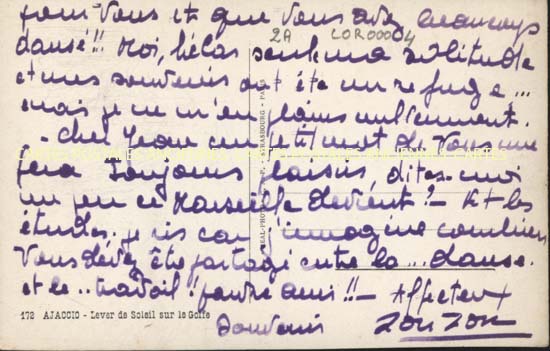 pour vous et que vous avez beaucoup
dansé!!! Moi, hélas seule ma solitude
2A COR00004
et mes souvenirs ont été un refuge...
mais je ne m'en plains nullement.
- Cher Jean un petit mot de vous me
fera toujours plaisir, dites-moi
un peu ce Marseille devient? - Et les
études. je ris car j'imagine combien
vous devez être partagé entre la ... danse.
et le .. travail! pauvre ami!! - Affectueux
172 AJACCIO - Lever de Soleil sur le Golfe
Souvenir ZouZou
REAL-PHOTO STRASBOURG - PARIS